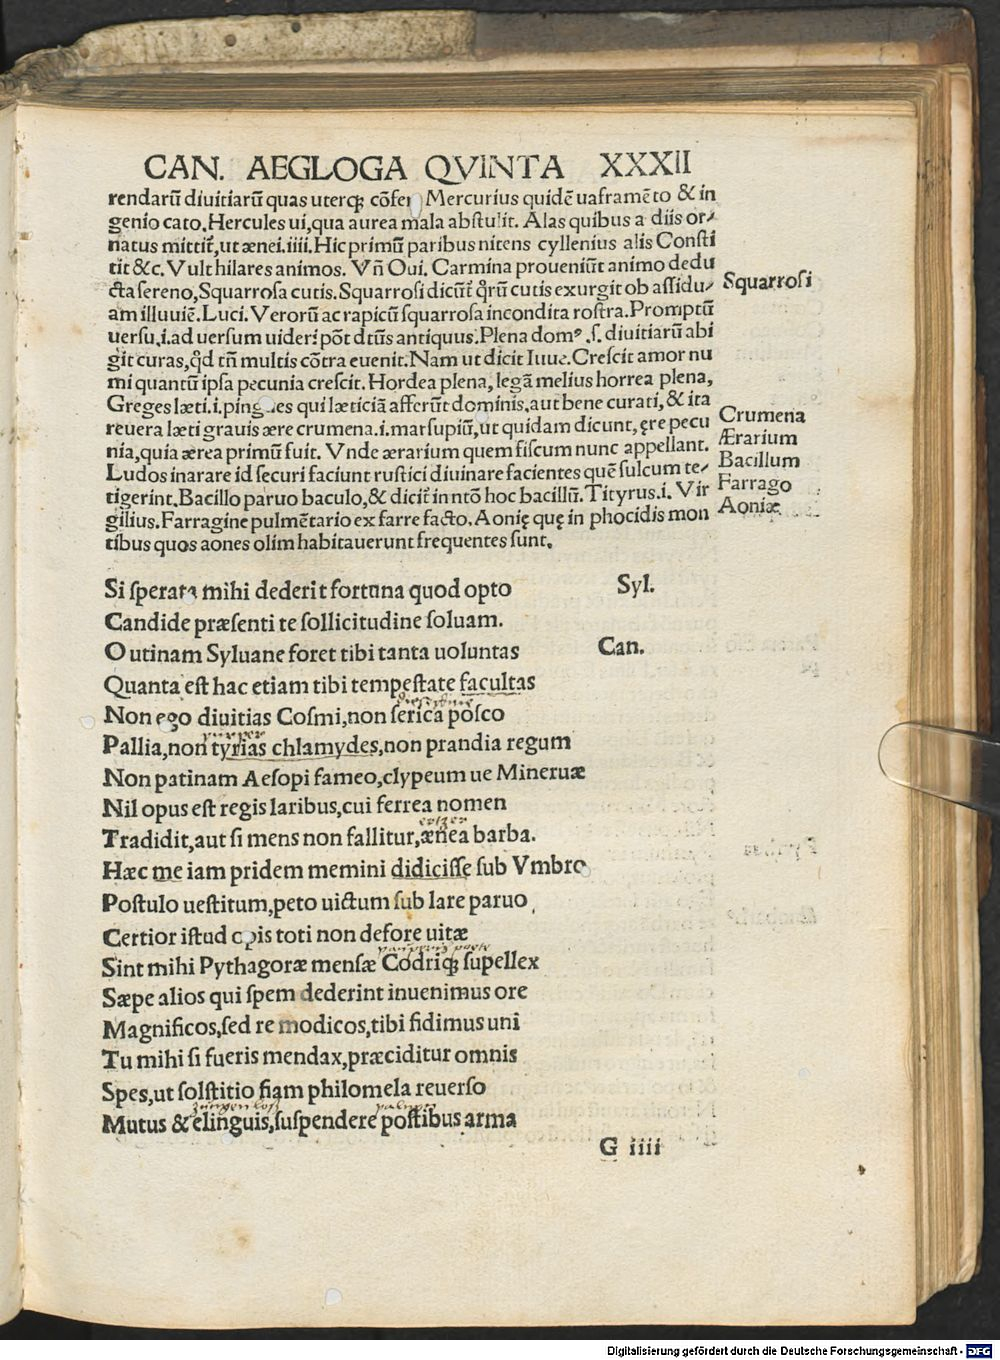 CAN. AEGLOGA QVINTA XXXII
rendarū diuitiarū quas uterqꝫ cōfer Mercurius quidē uaframēto & in
genio cato. Hercules ui, qua aurea mala abstulit. Alas quibus a diis or⸗
natus mittit̃, ut ænei. iiii. Hic primū paribus nitens cyllenius alis Consti
tit &c. Vult hilares animos. Vñ Oui. Carmina proueniūt animo dedu
cta sereno, Squarrosa cutis. Squarrosi dicūt̃ qꝝ̄ cutis exurgit ob assidu⸗
am illuuiē. Luci. Verorū ac rapicū squarrosa incondita rostra. Promptū
uersu. i. ad uersum uideri pōt dtūs antiquus. Plena domꝰ .s. diuitiarū abi
git curas, qd̄ tn̄ multis cōtra euenit. Nam ut dicit Iuue. Crescit amor nu
mi quantū ipsa pecunia crescit. Hordea plena, legā melius horrea plena,
Greges læti. i. pingues qui læticiā afferūt dominis, aut bene curati, & ita
reuera læti grauis ære crumena. i. marsupiū, ut quidam dicunt, ęre pecu
nia, quia ærea primū fuit. Vnde ærarium quem fiscum nunc appellant.
Ludos inarare id securi faciunt rustici diuinare facientes quē sulcum te⸗
tigerint. Bacillo paruo baculo, & dicit̃ in ntō hoc bacillū. Tityrus. i. Vir
gilius. Farragine pulmētario ex farre facto. Aonię quę in phocidis mon
tibus quos aones olim habitauerunt frequentes sunt.
Squarrosi
Crumena
Ærarium
Bacillum
Farrago
Aoniæ
Si sperata mihi dederit fortuna quod opto Syl.
Candide præsenti te sollicitudine soluam.
O utinam Syluane foret tibi tanta uoluntas Can.
Quanta est hac etiam tibi tempestate facultas
Non ego diuitias Cosmi, non serica posco
Pallia, non tyrias chlamydes, non prandia regum
Non patinam Aesopi fameo, clypeum ue Mineruæ
Nil opus est regis laribus, cui ferrea nomen
Tradidit, aut si mens non fallitur, ænea barba.
Hæc me iam pridem memini didicisse sub Vmbro
Postulo uestitum, peto uictum sub lare paruo
Certior istud opis toti non defore uitæ
pauperis poete
Sint mihi Pythagoræ mensæ Codriqꝫ supellex
Sæpe alios qui spem dederint inuenimus ore
Magnificos, sed re modicos, tibi fidimus uni
Tu mihi si fueris mendax, præciditur omnis
Spes, ut solstitio fiam philomela reuerso
zungenloß
Mutus & elinguis, suspendere postibus arma
G iiii
Digitalisierung gefördert durch die Deutsche Forschungsgemeinschaft - DFG